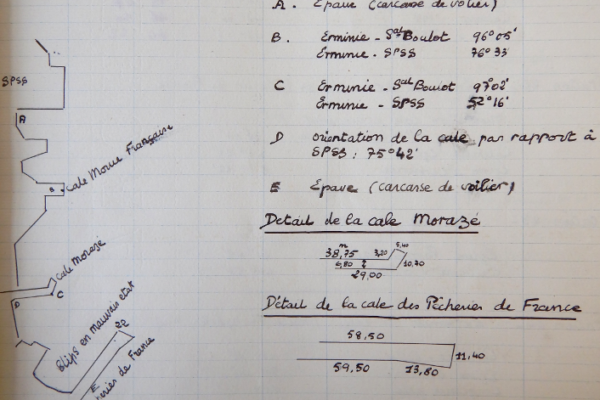 A. Epave (carcasse de voilier)
B. Erminie - Sal Boulot 96°05'
Erminie - SPSS 76°33
C Erminie - Sal Bouiot 97°02'
Erminie - SPSS 52°16'
D orientation de la cale par rapport à
SPSS : 75°42'
E Epave (carcasse de voilier)
Detail de la cale Morazé
m
38,75 3,20 5,40
6,80 10,20
29,00
Détail de la cale des Pêcheries de France
58,50
11,40
59,50 13,80
SPSS
A
Cale Morue Française
B
Cale Morazé
D C
Slips en mauvais etat
E
de France